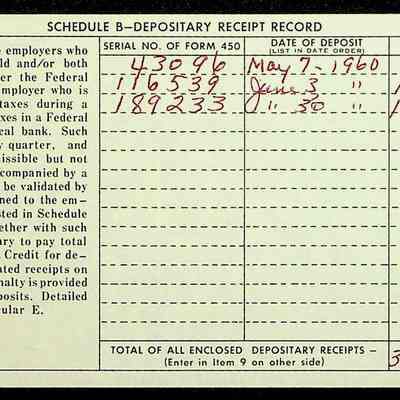 SCHEDULE B—DEPOSITARY RECEIPT RECORD
e employers who
ld and/or both
er the Federal
mployer who is
taxes during a
xes in a Federal
cal bank. Such
y quarter, and
issible but not
companied by a
be validated by
ned to the em-
sted in Schedule
ether with such
ary to pay total
Credit for de-
ated receipts on
nalty is provided
posits. Detailed
ular E.
SERIAL NO. OF FORM 450
DATE OF DEPOSIT
(LIST IN DATE ORDER)
43096 May 7-1960
116539 June 3 "
189233 " 30 "
TOTAL OF ALL ENCLOSED DEPOSITARY RECEIPTS –
(Enter in Item 9 on other side)
3